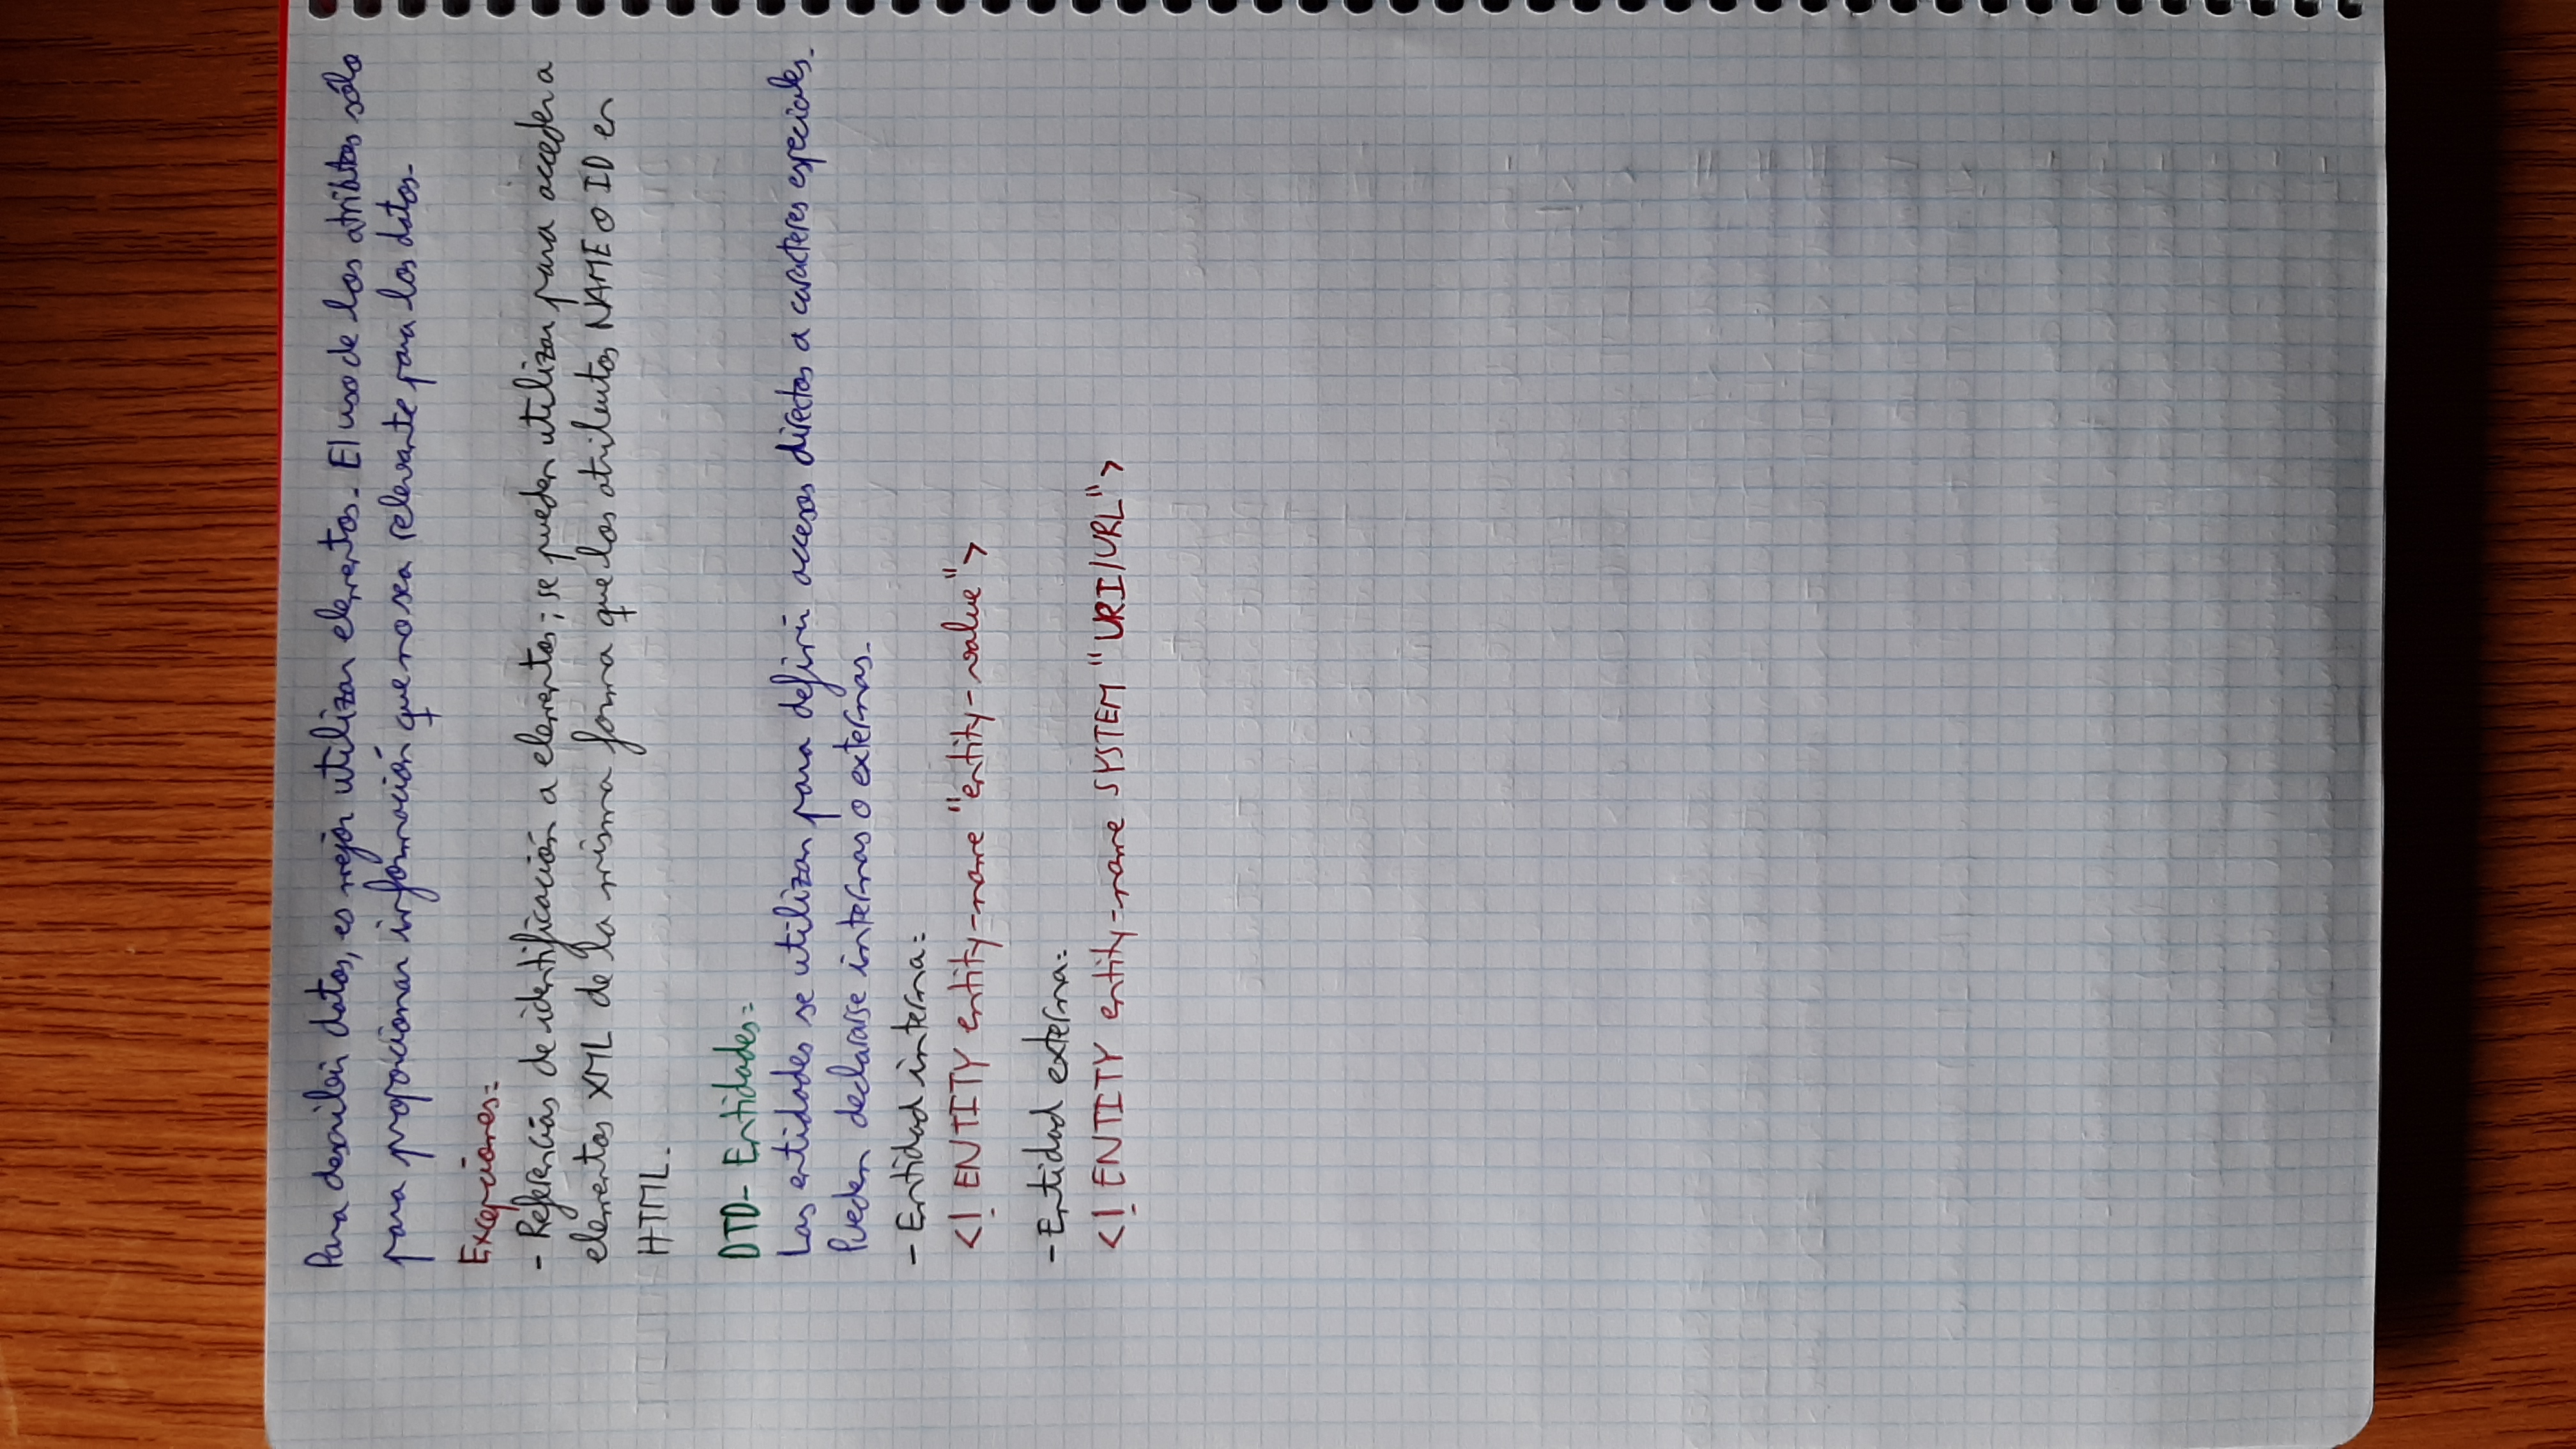 Para describir datos, es mejor utilizar elementos. El uso de los atributos sólo
para proporcionar información que no sea relevante para los datos.
Excepciones:
- Referencias de identificación a elementos; se pueden utilizar para acceder a
elementos XML de la misma forma que los atributos NAME o ID en
HTML.
DTD- Entidades:
Las entidades se utilizan para definir accesos directos a caracteres especiales.
Pueden declararse internas o externas.
- Entidad interna:
<! ENTITY entity-name "entity-value">
- Entidad externa:
<! ENTITY entity-name SYSTEM "URI/URL">